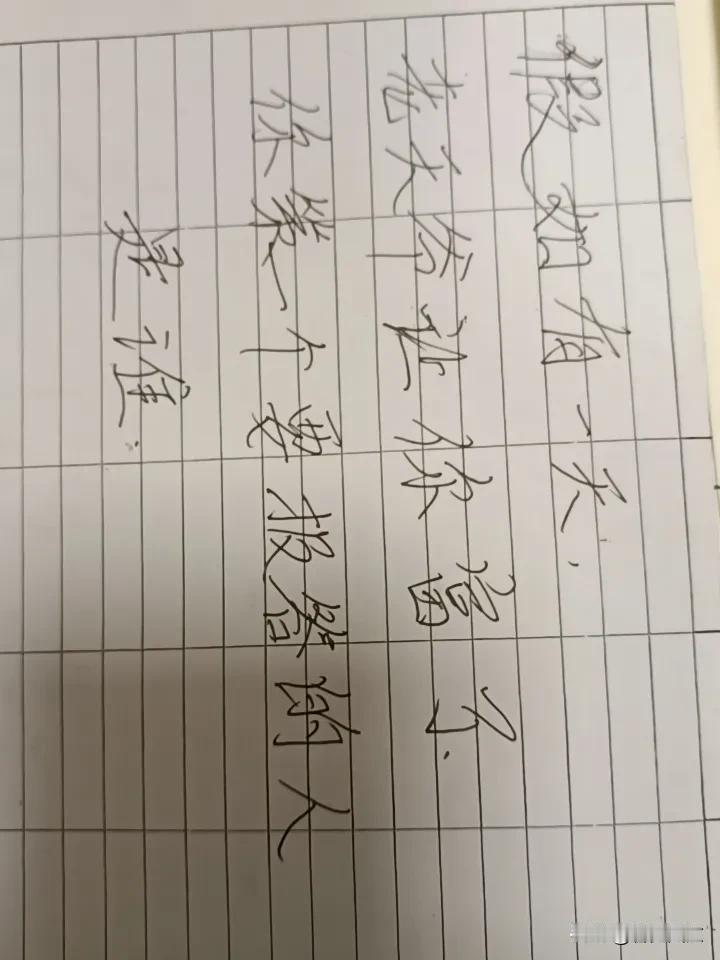 假如有一天.
老天爷让你富了.
你第一个要报答的人
是谁.